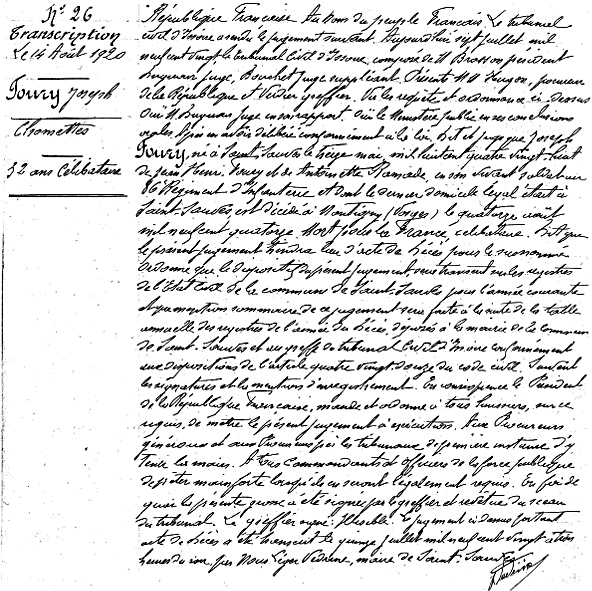 N° 26
Transcription
Le 14 Août 1920
Foury Joseph
Chomettes
32 ans Célibataire
République Française. Au Nom du peuple Français. Le tribunal
civil d'Issoire a rendu le jugement suivant. Aujourd'hui sept juillet mil
neuf cent vingt le tribunal civil d'Issoire, composé de M. Brosson président
Juge, Bouchet Juge suppléant. Présents MM procureur
de la République et Verdier greffier. Vu les requête et ordonnance ci-dessus
Ouï M. Juge en son rapport. Ouï le Ministère public en ses conclusions
verbales. Après en avoir délibéré conformément à la loi, Dit et juge que Joseph
Foury, né à Saint-Sauves le treize mai mil huit cent quatre vingt-huit
de Jean Henri Foury et de Antoinette Ramade, en son vivant soldat au
86e Régiment d'Infanterie et dont le dernier domicile légal était à
Saint-Sauves est décédé à Montigny (Vosges) le quatorze août
mil neuf cent quatorze Mort pour la France, célibataire. Dit que
le présent jugement tiendra lieu d'acte de décès pour le susnommé
ordonne que le dispositif du présent jugement sera transcrit sur les registres
de l'Etat Civil de la commune de Saint-Sauves pour l'année courante
et que mention sommaire de ce jugement sera faite à la suite de la table
annuelle des registres de l'année du décès, déposés à la mairie de la commune
de Saint-Sauves et au greffe du tribunal Civil d'Issoire conformément
aux dispositions de l'article quatre vingt-douze du code civil. Suivent
les signatures et les mentions d'enregistrement. En conséquence le Président
de la République Française, mande et ordonne à tous huissiers, sur ce
requis, de mettre le présent jugement à exécution. Aux Procureurs
généraux et aux Procureurs près les tribunaux de première instance d'y
tenir la main. A tous Commandants et Officiers de la force publique
de prêter main forte lorsqu'ils en seront légalement requis. En foi de
quoi la présente grosse a été signée par le greffier et revêtue du sceau
du tribunal. Le greffier signé: illisible. Le jugement ci-dessus portant
acte de décès a été transcrit le quinze juillet mil neuf cent vingt à trois
heures du soir, par Nous Léger Vedrine, maire de Saint-Sauves